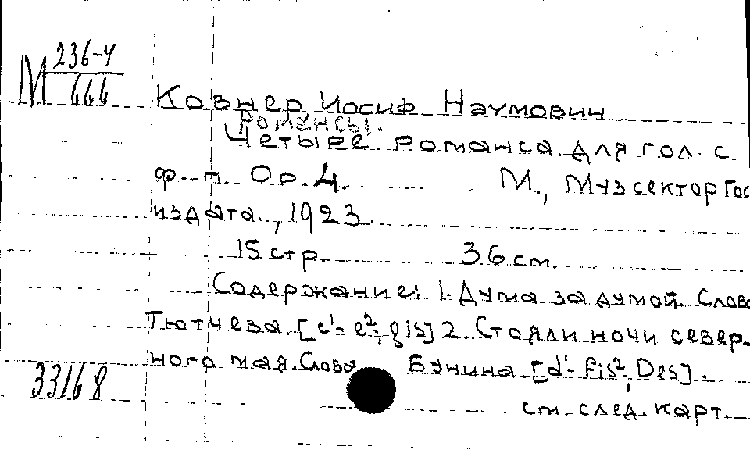 М 236-4
666
Ковнер Иосиф Наумович
Романсы.
Четыре романса для гол. с
ф.-п. Ор. 4. М., Музсектор Гос
издата, 1923.
15 стр. 36 см.
Содержание: 1. Дума за думой. Слова
Тютчева [c¹-e², gis] 2. Стояли ночи север-
ного мая. Слова Бунина [d¹-fis², Des].
33168
см. след. карт.